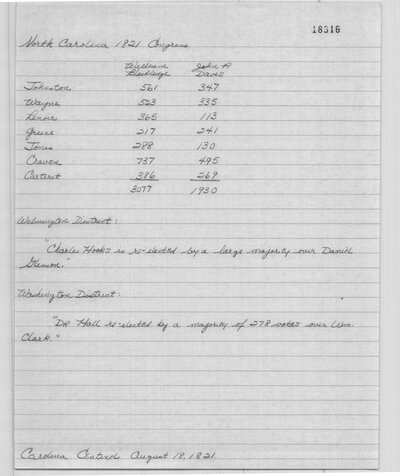 18316
North Carolina 1821 Congress
William Blackledge
John R Davis
Johnston 561 347
Wayne 523 335
Lenoir 365 113
Greene 217 241
Jones 288 130
Craven 737 495
Carteret 386 269
3077 1930
Wilmington District:
"Charles Hooks is re-elected by a large majority over Daniel
Glisson."
Washington District:
"DR Hall re-elected by a majority of 278 votes over Wm.
Clark."
Carolina Centinel August 18, 1821.